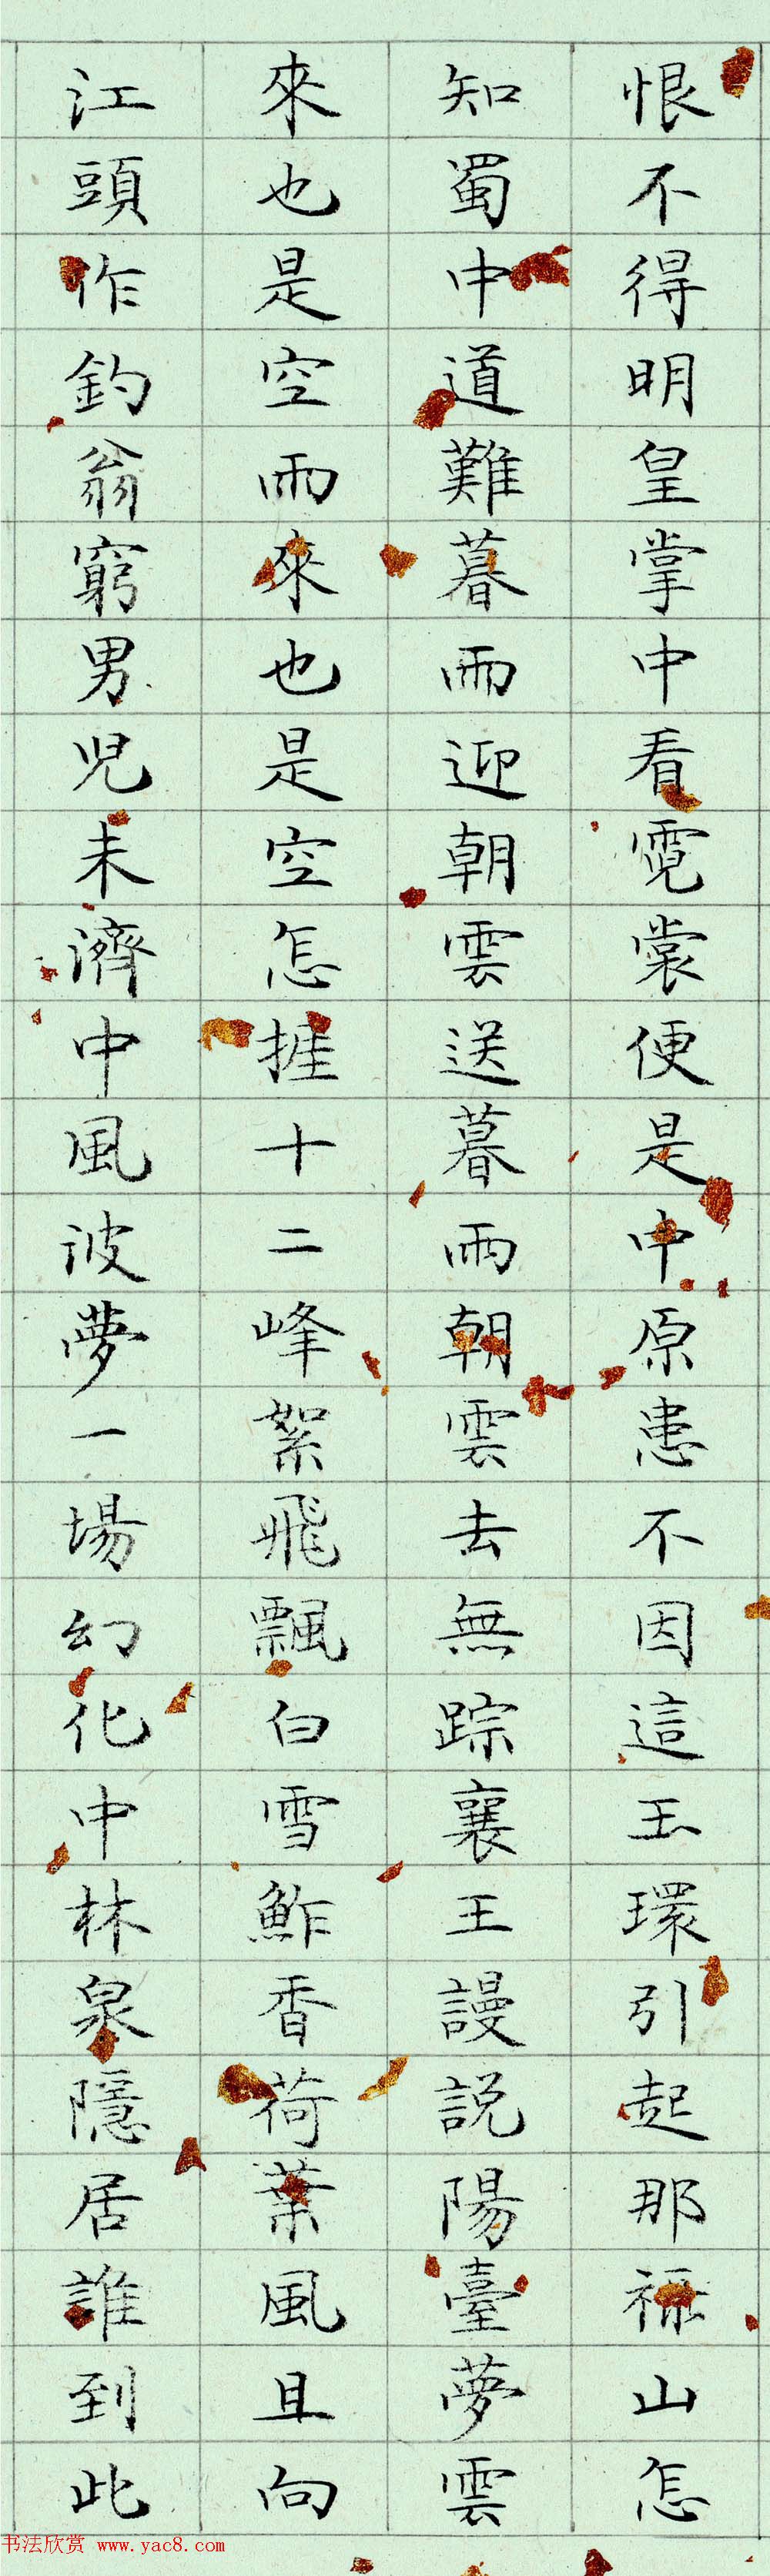 恨不得明皇掌中看霓裳便是中原患不因這玉環引起那祿山怎
知蜀中道難暮雨迎朝雲送暮雨朝雲去無踪襄王謾説陽臺夢雲
來也是空雨來也是空怎捱十二峰絮飛飄白雪鮓香荷葉風且向
江頭作釣翁窮男児未濟中風波夢一場幻化中林泉隱居誰到此
书法欣赏 www.yac8.com